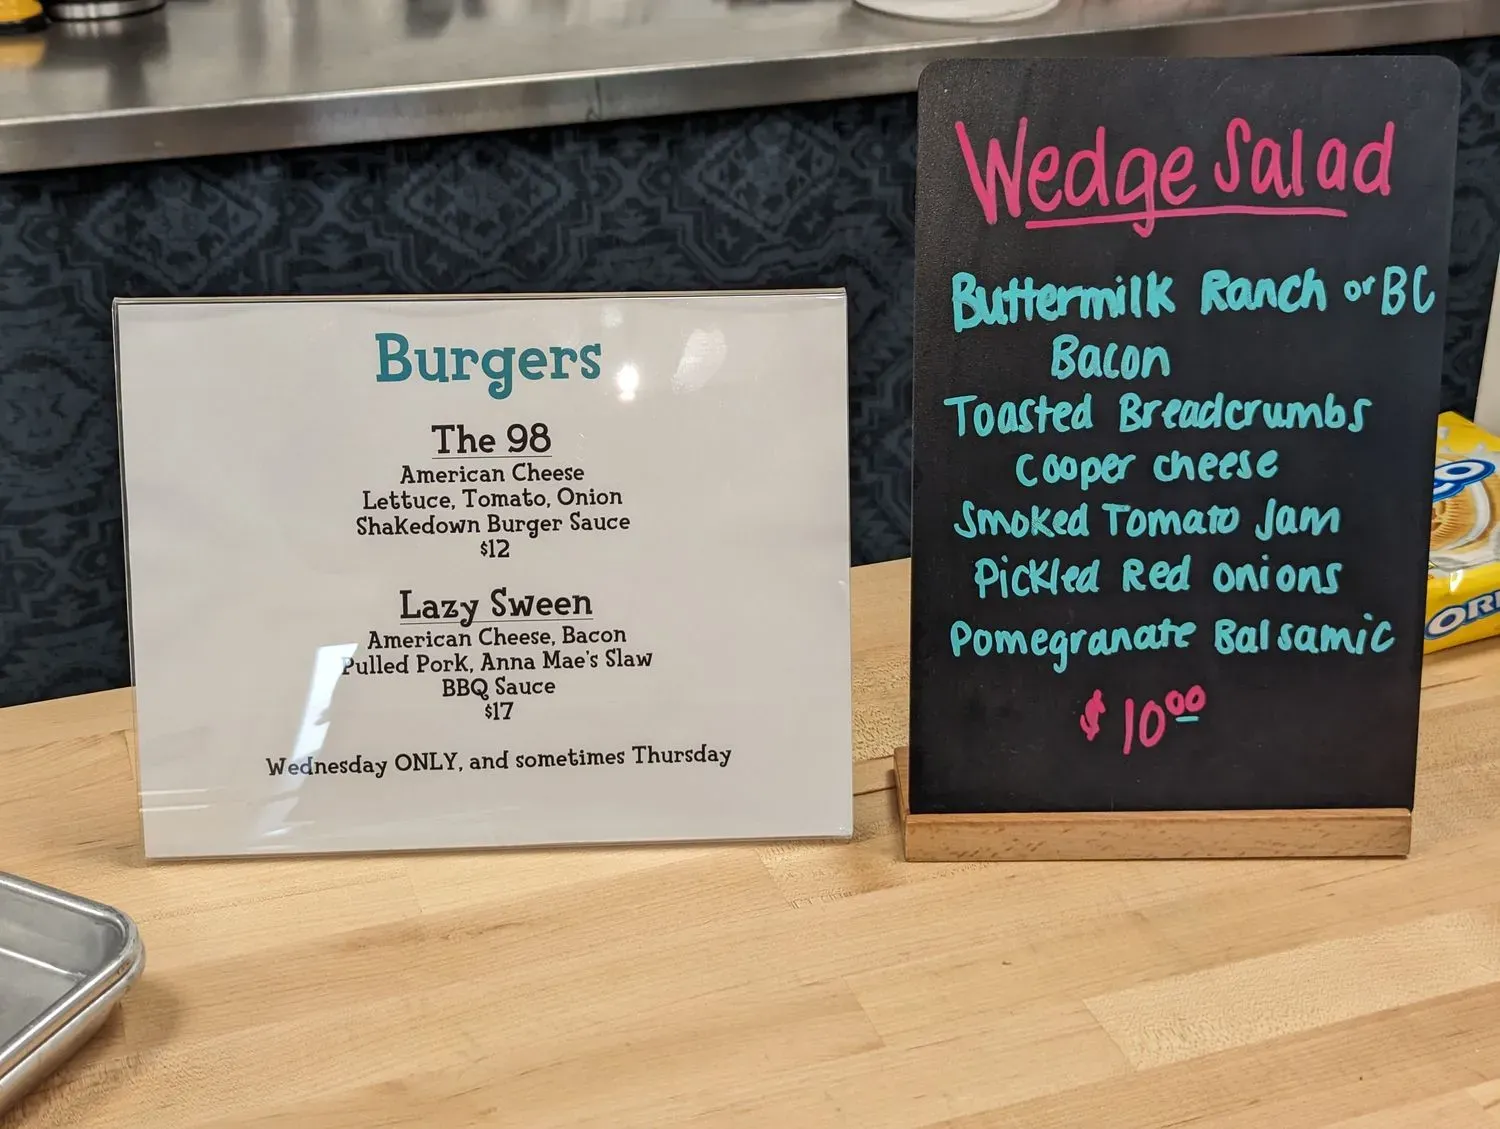 Burgers
The 98
American Cheese
Lettuce, Tomato, Onion
Shakedown Burger Sauce
$12
Lazy Sween
American Cheese, Bacon
Pulled Pork, Anna Mae's Slaw
BBQ Sauce
$17
Wednesday ONLY, and sometimes Thursday
Wedge Salad
Buttermilk Ranch or BC
Bacon
Toasted Breadcrumbs
Cooper cheese
Smoked Tomato Jam
Pickled Red onions
Pomegranate Balsamic
$10.00